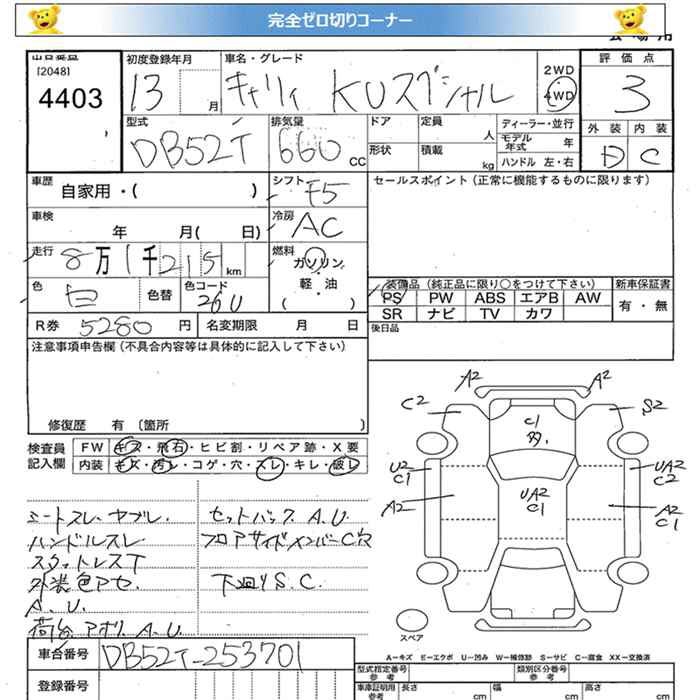 完全ゼロ切りコーナー
出品番号
[2048]
4403
初度登録年月
13 月
車名・グレード
キャリィ KUスペシャル
2WD
4WD
評価点
3
外装 内装
D C
型式
DB52T
排気量
660 CC
ドア
定員 人
ディーラー・並行
モデル年式 年
形状
積載 kg
ハンドル 左・右
車歴
自家用・( )
シフト
F5
セールスポイント (正常に機能するものに限ります)
車検
年 月( 日)
冷房
AC
走行
8万1千215 km
燃料
ガソリン
・
軽・油
( )
色
白
色替
色コード
26U
装備品 (純正品に限り○をつけて下さい)
新車保証書
PS PW ABS エアB AW
有・無
SR ナビ TV カワ
R券 5280 円
名変期限 月 日
後日品
注意事項申告欄 (不具合内容等は具体的に記入して下さい)
修復歴 有 〔箇所 〕
検査員記入欄
FW キズ・飛石・ヒビ割・リペア跡・X要
内装 キズ・汚レ・コゲ・穴・スレ・キレ・破レ
シートスレ・ヤブレ.
ハンドルスレ
スカットレスT
外装色アセ.
A.U.
荷台アオリA.U.
セットバックA.U.
フロアサイドメンバーC大
下廻りS.C.
A2
A2
C2
S2
C1
U2
C1
UA2
C2
UA2
C1
A2
A2
C1
スペア
A－キズ E－エクボ U－凹み W－補修跡 S－サビ C－腐食 XX－交換済
車台番号
DB52T-253701
登録番号
型式指定番号
参考
類別区分番号
参考
車庫証明用
参考
長さ cm
幅 cm
高さ cm